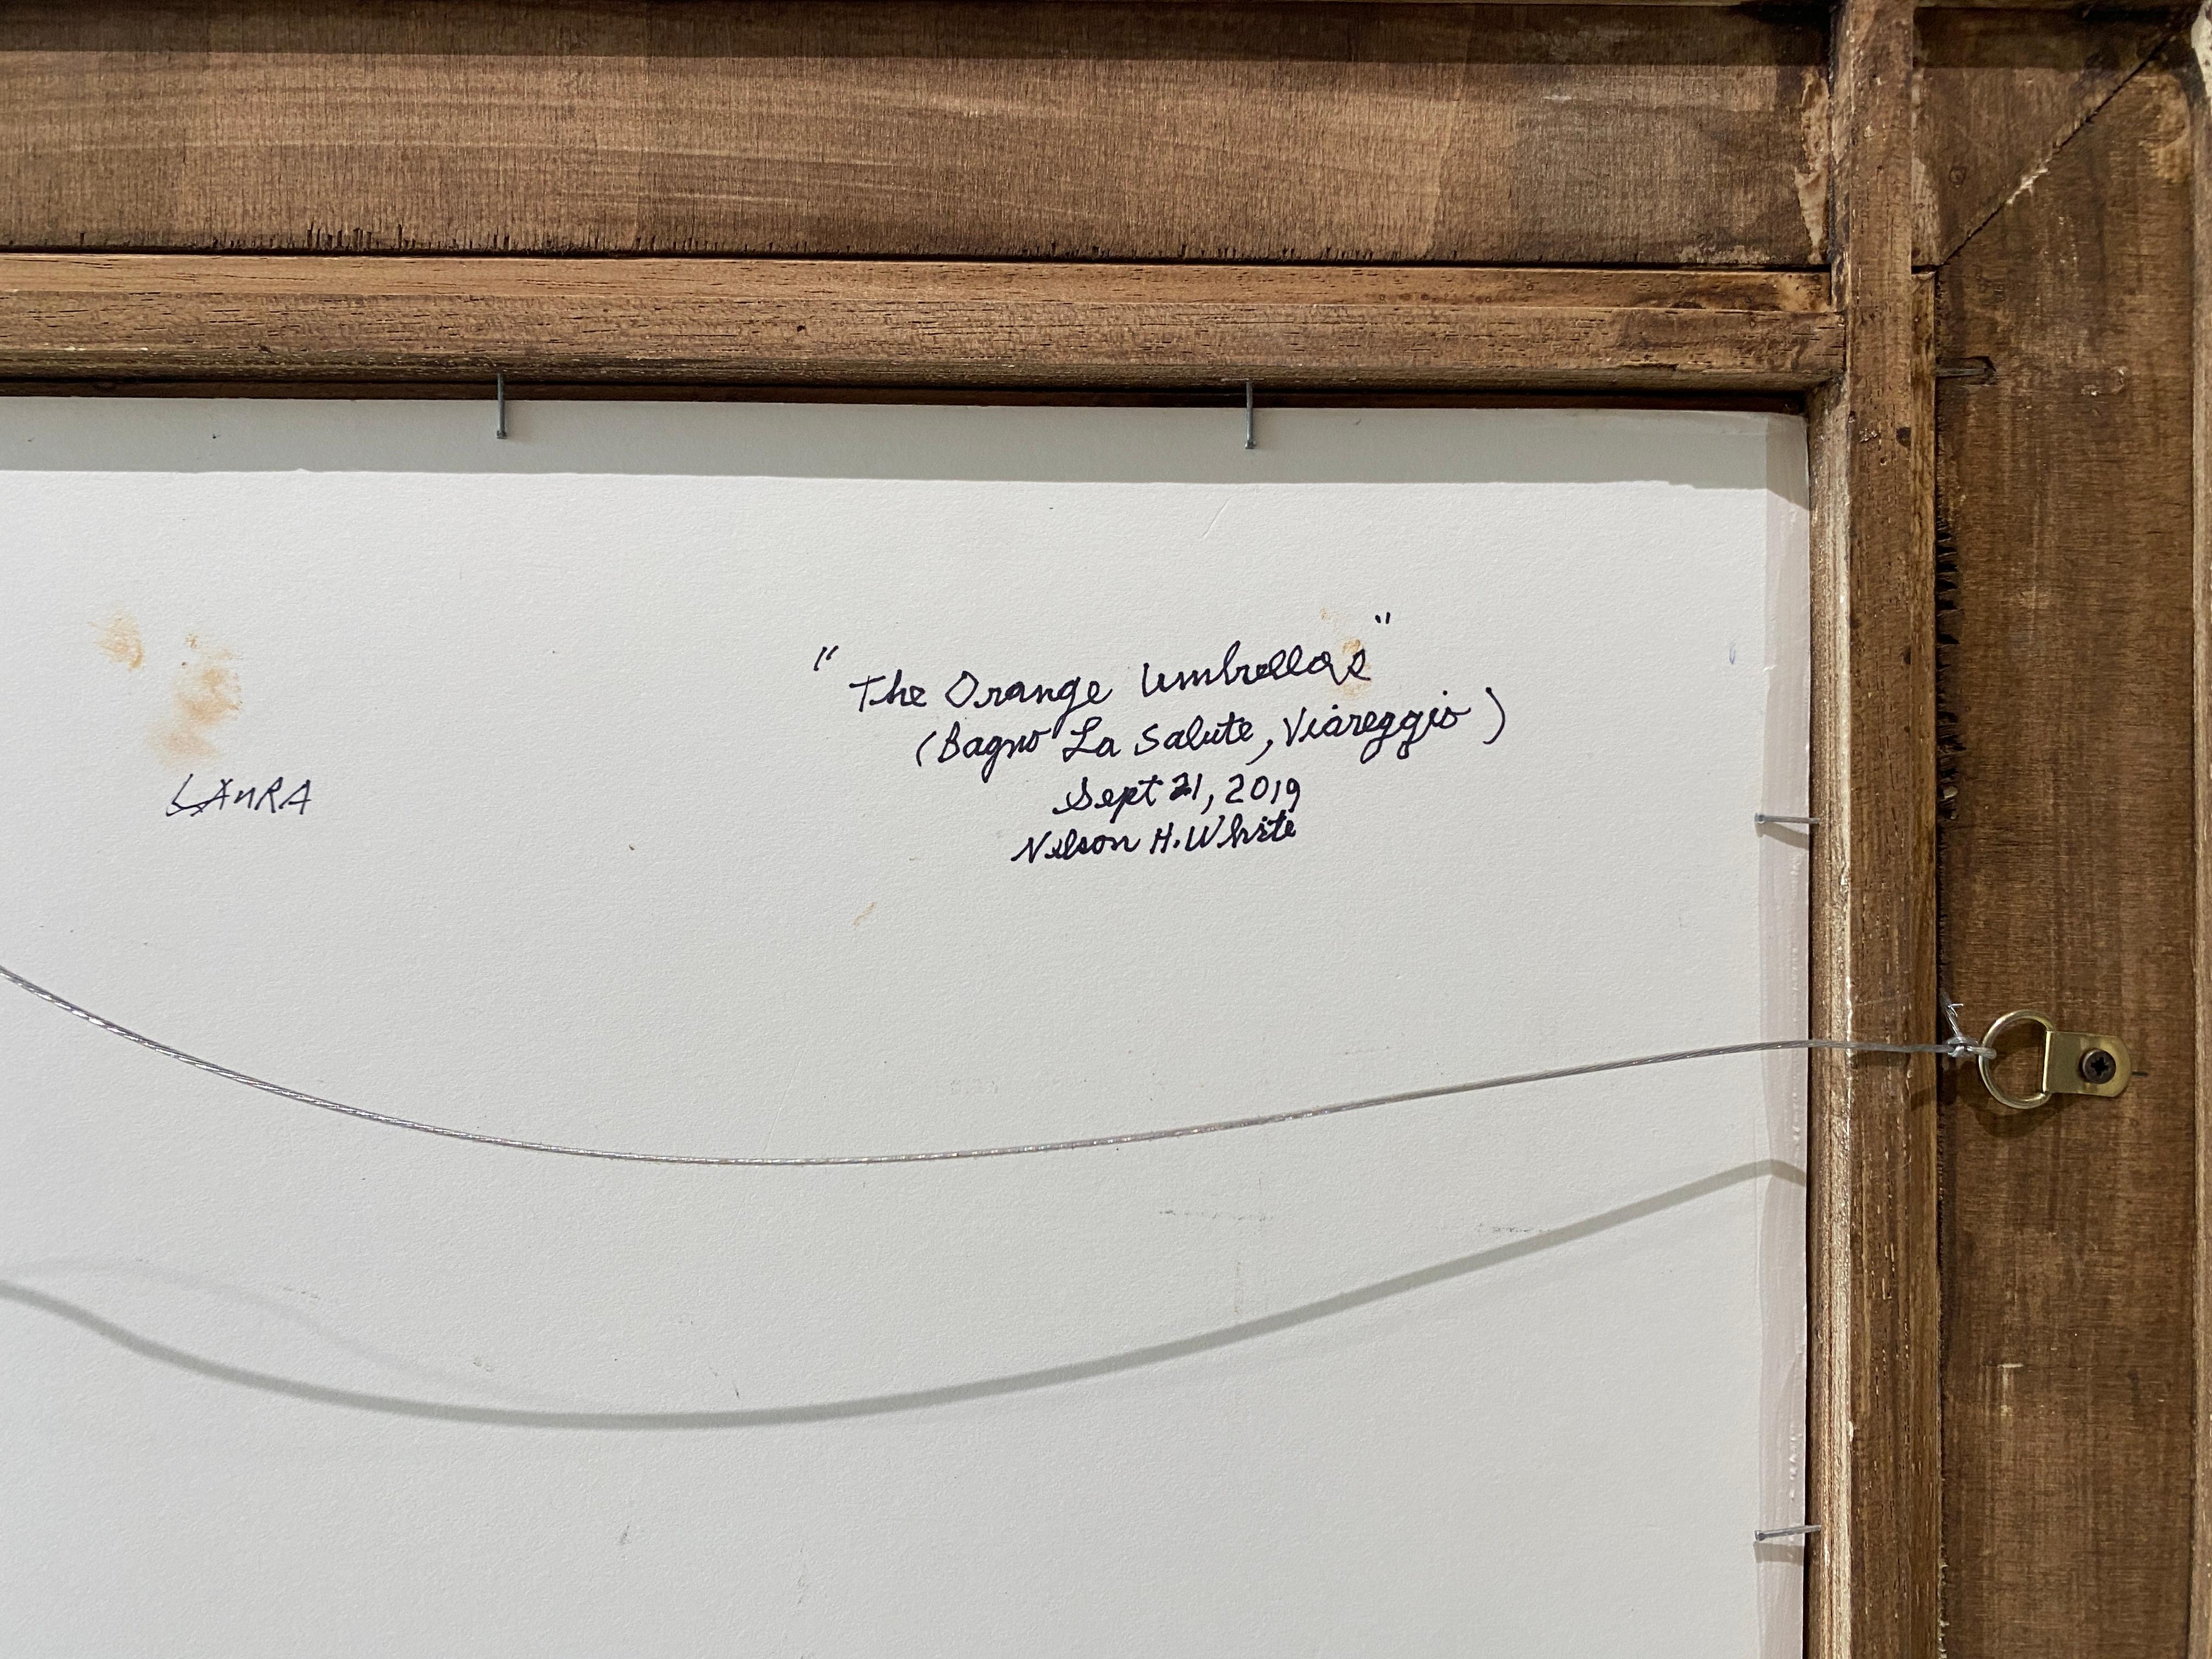 "The Orange Umbrellas"
(Bagno La Salute, Viareggio)
Sept 21, 2019
Nelson H. White
LAURA